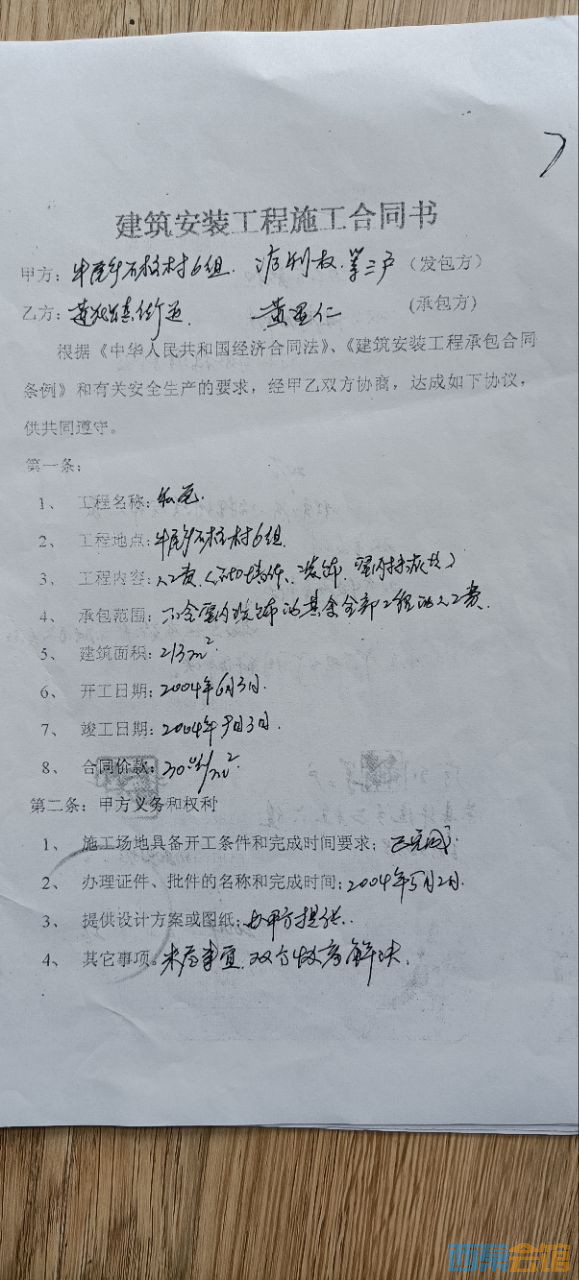 建筑安装工程施工合同书
甲方：石板村6组. 第三户（发包方）
乙方：街道. 黄 仁 (承包方)
根据《中华人民共和国经济合同法》、《建筑安装工程承包合同
条例》和有关安全生产的要求，经甲乙双方协商，达成如下协议，
供共同遵守。
第一条：
1、 工程名称：
2、 工程地点：村6组.
3、 工程内容：人工费
4、 承包范围：不含室内装饰的其余全部工程的人工费.
5、 建筑面积：213m²
6、 开工日期：2004年6月3日.
7、 竣工日期：2004年9月3日.
8、 合同价款：/m²
第二条：甲方义务和权利
1、 施工场地具备开工条件和完成时间要求：已完成.
2、 办理证件、批件的名称和完成时间：2004年5月2日.
3、 提供设计方案或图纸：由甲方提供.
4、 其它事项。未尽事宜.双方协商解决.
西祠会馆